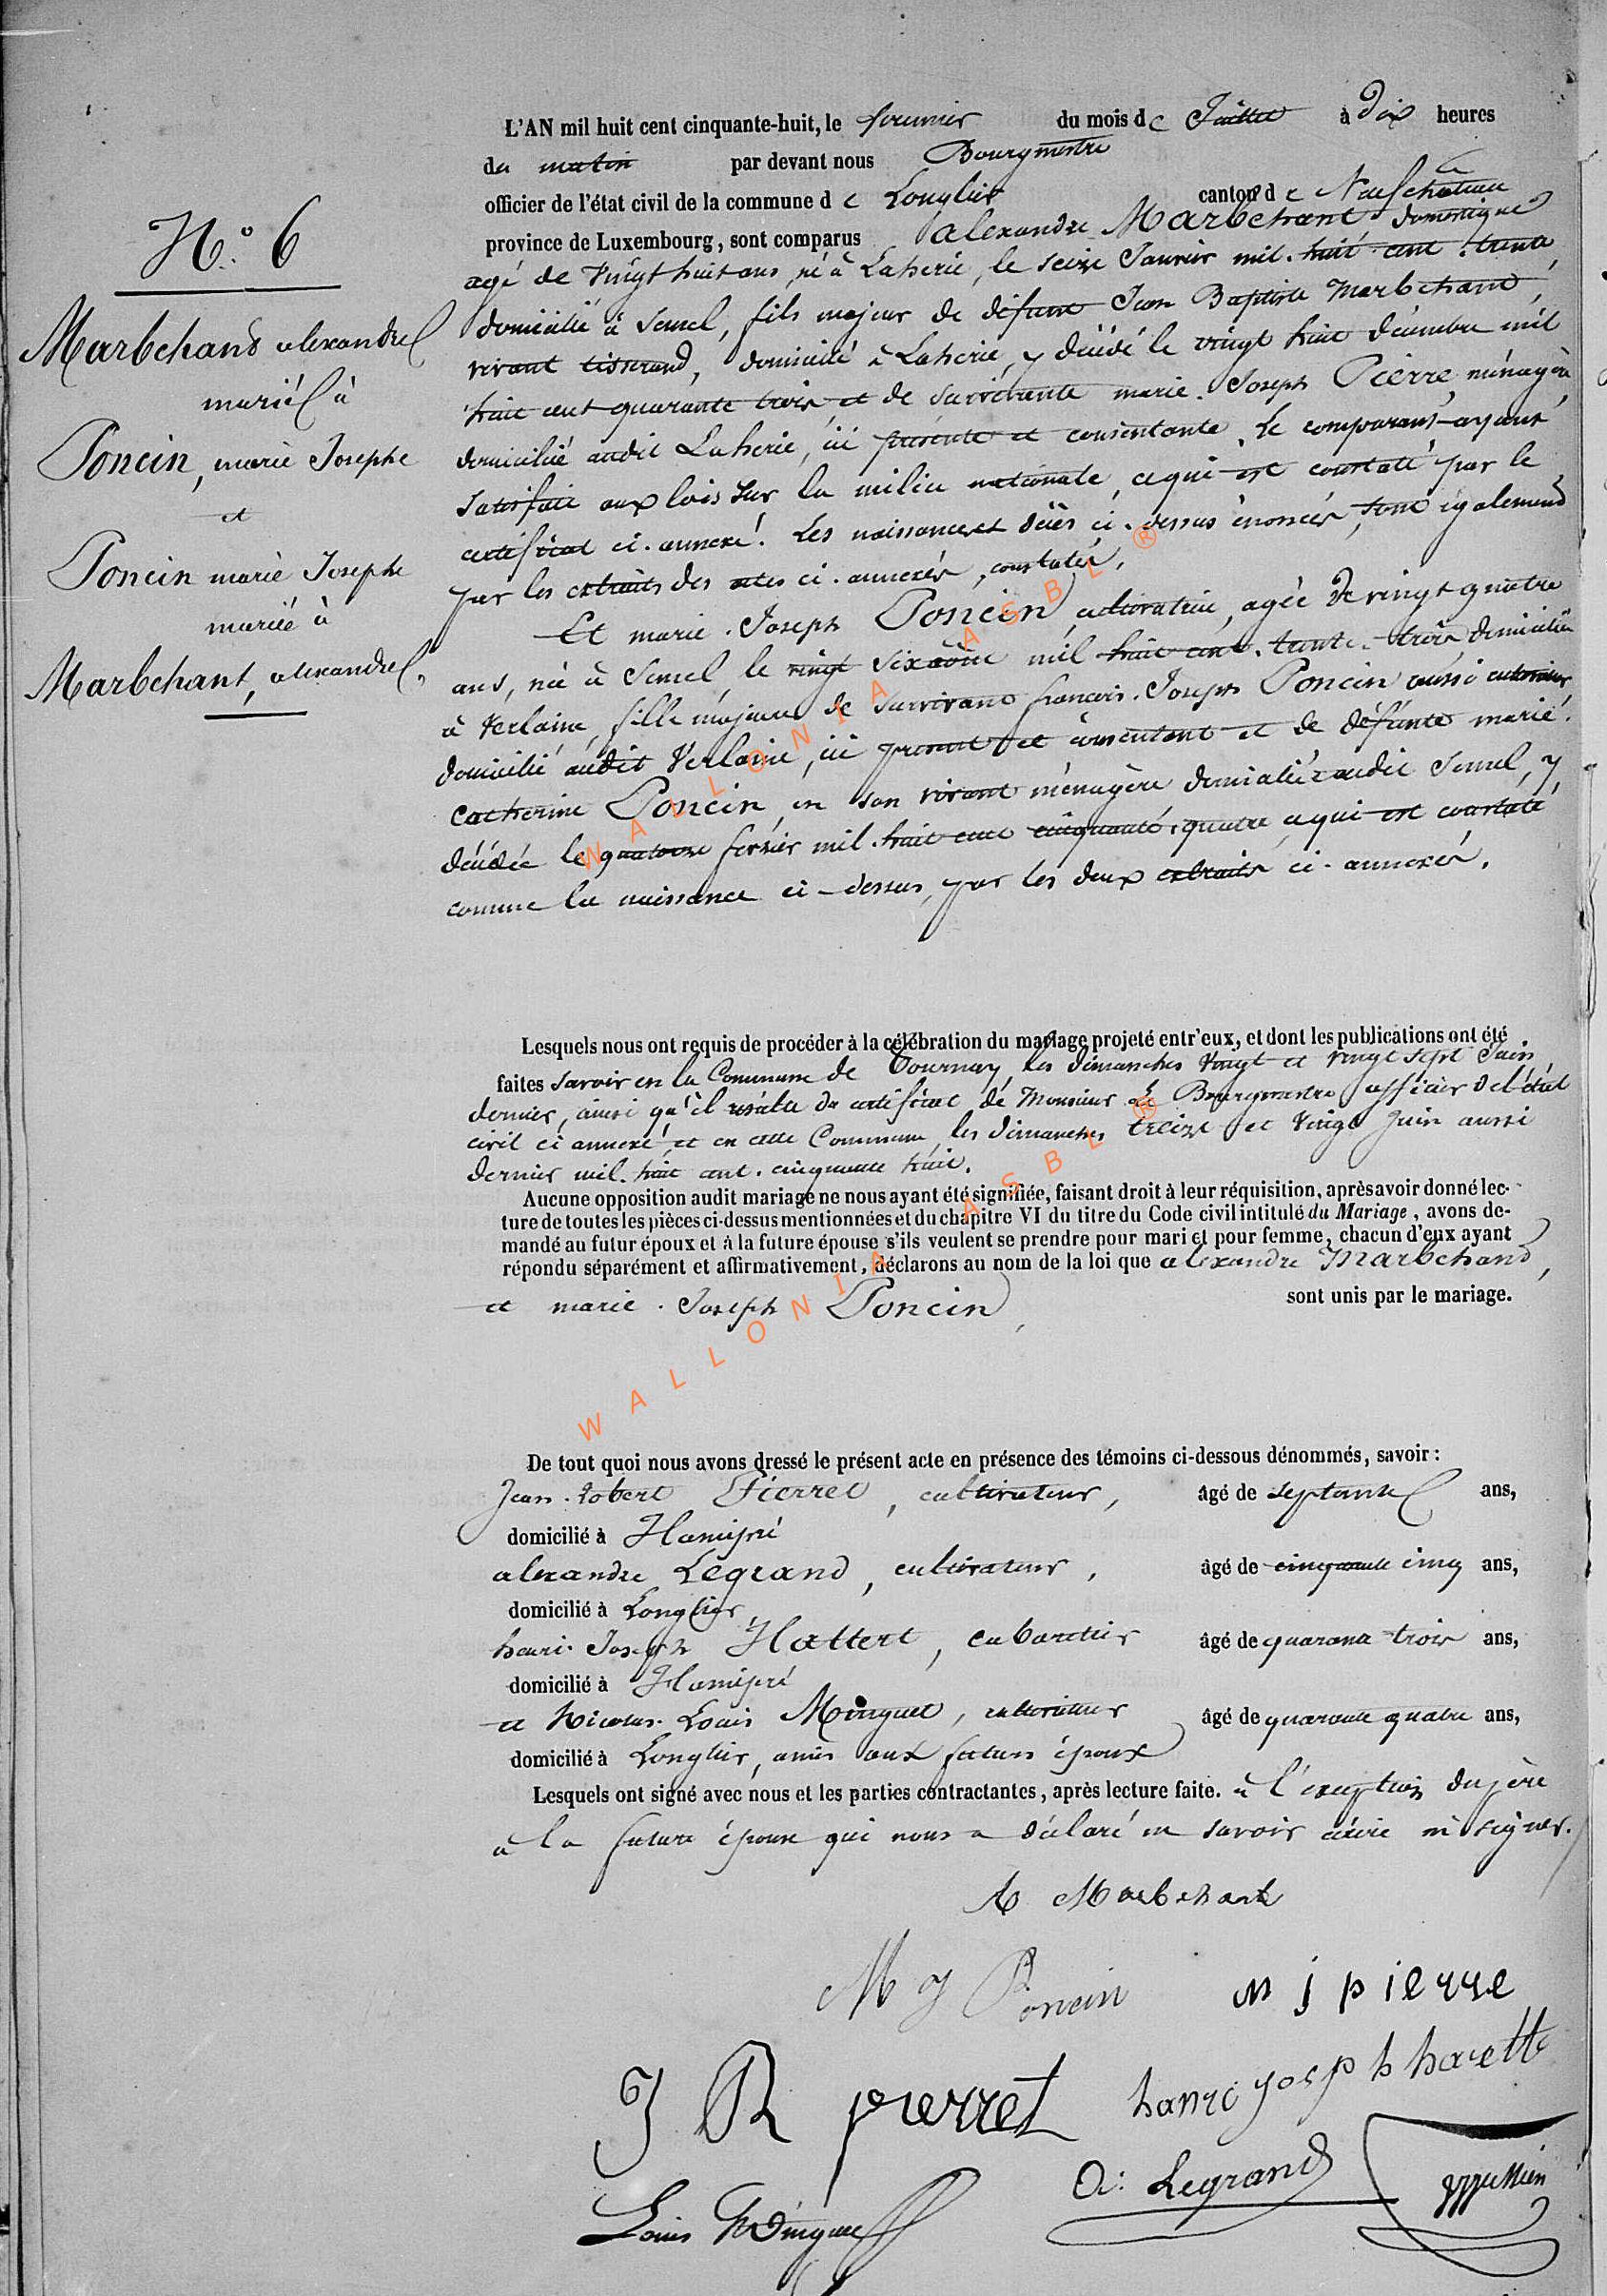 N.° 6
Marbchant alexandre
marié à
Poncin, marie Josephe
et
Poncin marie Josephe
mariée à
Marbchant, alexandre,
L'AN mil huit cent cinquante-huit, le premier du mois de Juillet à Dix heures
du matin par devant nous Bourgmestre
officier de l'état civil de la commune de Longlier canton de Neufchateau
province de Luxembourg, sont comparus alexandre Marbchant domestique
agé de vingt huit ans, né à Laherie, le seize Janvier mil. huit cent. trente,
domicilié à Semel, fils majeur de défunt Jean Baptiste Marbchant,
vivant tisserand, domicilié à Laherie, y décédé le vingt huit décembre mil
huit cent quarante trois et de survivante marie. Joseph Pierre, ménagère
domiciliée audit Laherie, ici présente et consentante. Le comparant ayant
satisfait aux lois sur la milice nationale, ce qui est constaté par le
certificat ci. annexé. Les naissances et décès ci. dessus énoncés, sont également
par les extraits des actes ci. annexés, constatés.
Et marie. Joseph Poncin, cultivatrice, agée de vingt quatre
ans, née à Semel, le vingt six août mil huit cent. trente. trois, domiciliée
à Verlaine, fille majeure de survivant françois. Joseph Poncin aussi cultivateur
domicilié audit Verlaine, ici présent et consentant et de défunte marie.
Catherine Poncin, en son vivant ménagère domiciliée audit Semel, y
décédée le quatorze février mil. huit cent cinquante. quatre ce qui est constaté,
comme la naissance ci-dessus, par les deux extraits ci. annexés.
Lesquels nous ont requis de procéder à la célébration du mariage projeté entr'eux, et dont les publications ont été
faites savoir en la Commune de Tournay, les dimanches vingt et vingt sept Juin
dernier, ainsi qu'il résulte du certificat de Monsieur le Bourgmestre officier de l'état
civil ci annexé, et en cette Commune, les dimanches treize et vingt Juin aussi
dernier mil. huit cent. cinquante huit.
Aucune opposition audit mariage ne nous ayant été signifiée, faisant droit à leur réquisition, après avoir donné lec-
ture de toutes les pièces ci-dessus mentionnées et du chapitre VI du titre du Code civil intitulé du Mariage, avons de-
mandé au futur époux et à la future épouse s'ils veulent se prendre pour mari et pour femme, chacun d'eux ayant
répondu séparément et affirmativement, déclarons au nom de la loi que alexandre Marbchant,
et marie. Joseph Poncin, sont unis par le mariage.
De tout quoi nous avons dressé le présent acte en présence des témoins ci-dessous dénommés, savoir:
Jean. Robert Pierret, cultivateur, âgé de septante ans,
domicilié à Hamipré
alexandre Legrand, cultivateur, âgé de cinquante cinq ans,
domicilié à Longlier,
henri. Joseph Hattert, cabaretier âgé de quarante trois ans,
domicilié à Hamipré
et Nicolas. Louis Minguet, cultivateur âgé de quarante quatre ans,
domicilié à Longlier, amis aux futurs époux
Lesquels ont signé avec nous et les parties contractantes, après lecture faite. à l'exception du père
à la future épouse qui nous a déclaré ne savoir écrire ni signer.
A Marbchant
M J Poncin m j pierre
J R pierret hanri josph haett
Louis Minguet A: Legrand
WALLONIA ASBL ®
WALLONIA ASBL ®